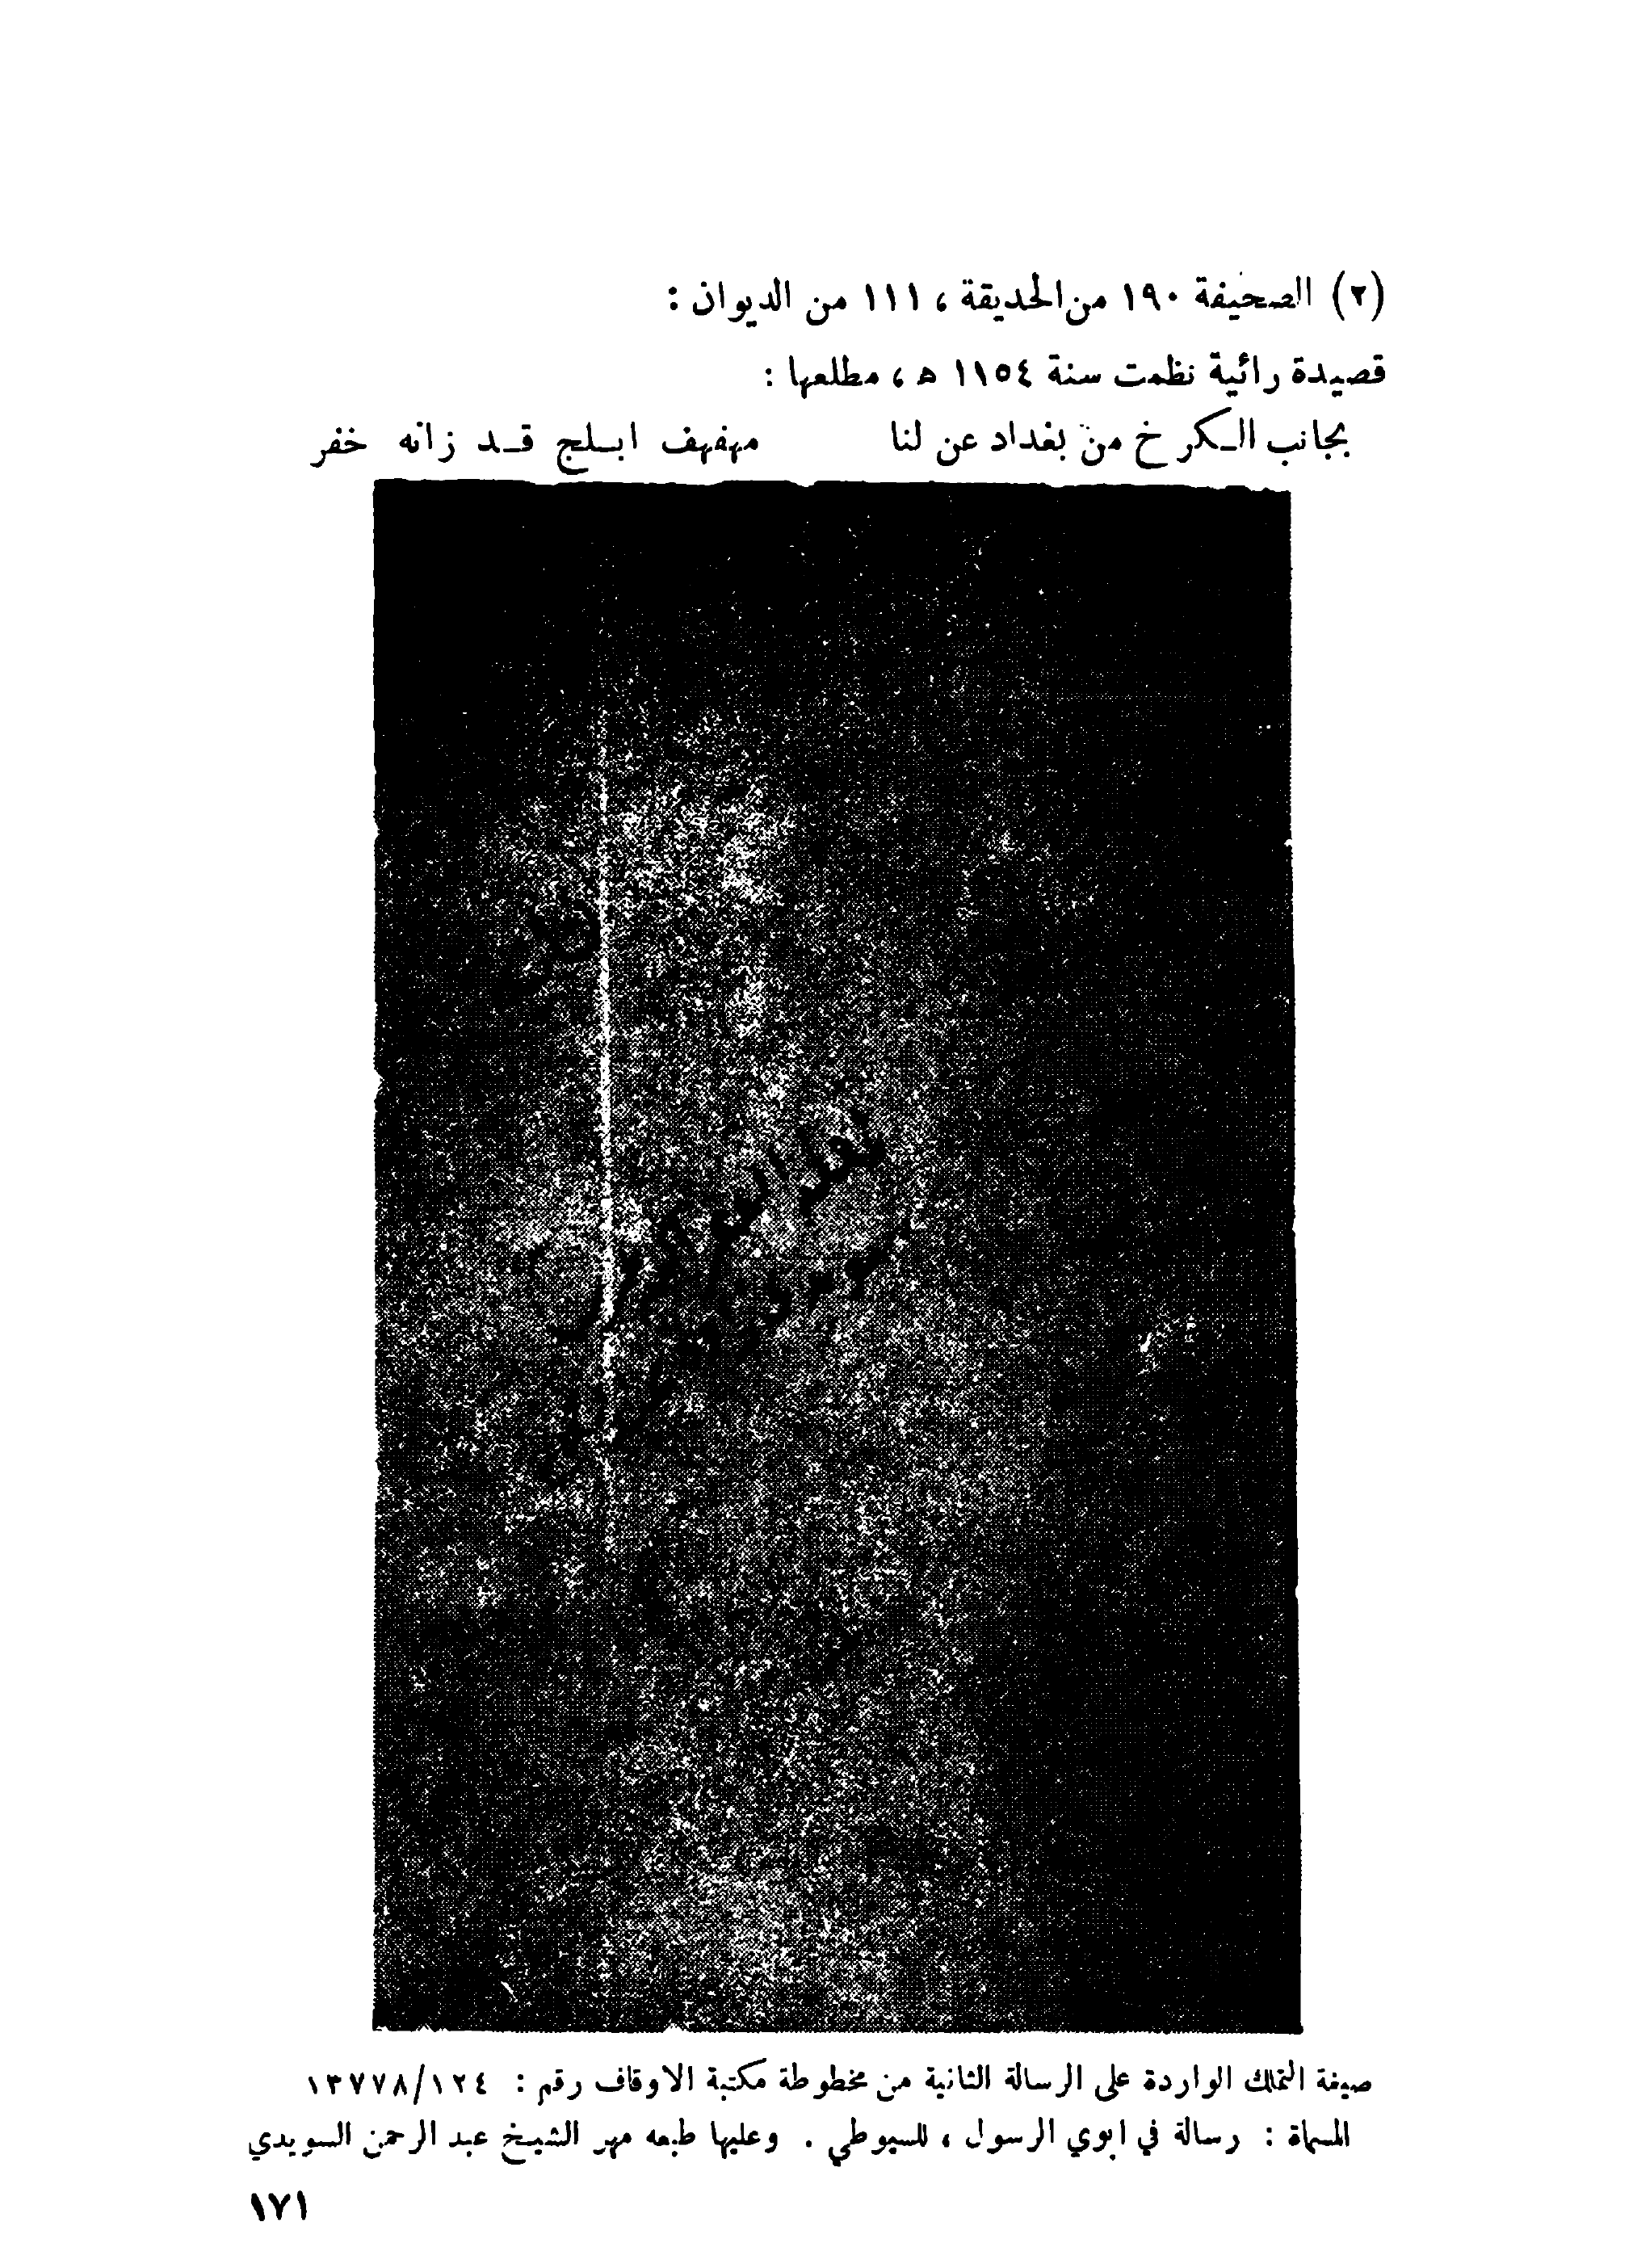 (٢) الصحيفة ١٩٠ من الحديقة ، ١١١ من الديوان :
قصيدة رائية نظمت سنة ١١٥٤ ه ، مطلعها :
بجانب الـكرخ من بغداد عن لنا مهفهف ابـلج قـد زانه خفر
صيغة التملك الواردة على الرسالة الثانية من مخطوطة مكتبة الاوقاف رقم : ١٣٧٧٨/١٢٤
المسماة : رسالة في ابوي الرسول ، للسيوطي . وعليها طبعه مهر الشيخ عبد الرحمن السويدي
١٧١